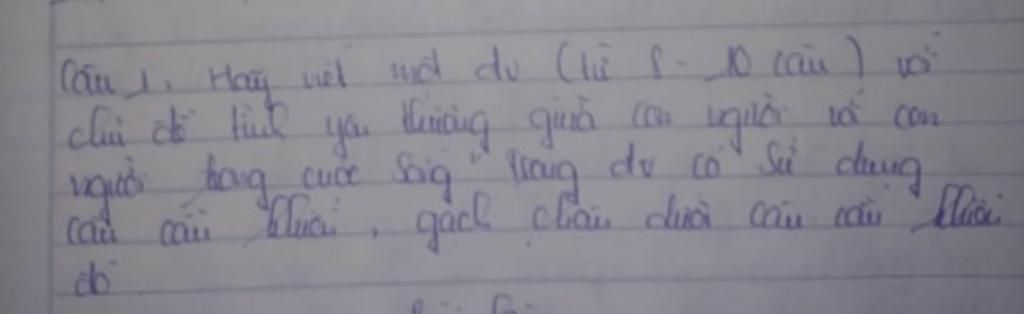 Câu 1. Hãy viết một đv (từ 8 - 10 câu) với
chủ đề tình yêu thương giữa con người với con
người trong cuộc sống" trong đv có sử dụng
câu cầu khiến, gạch chân dưới câu cầu khiến
đó